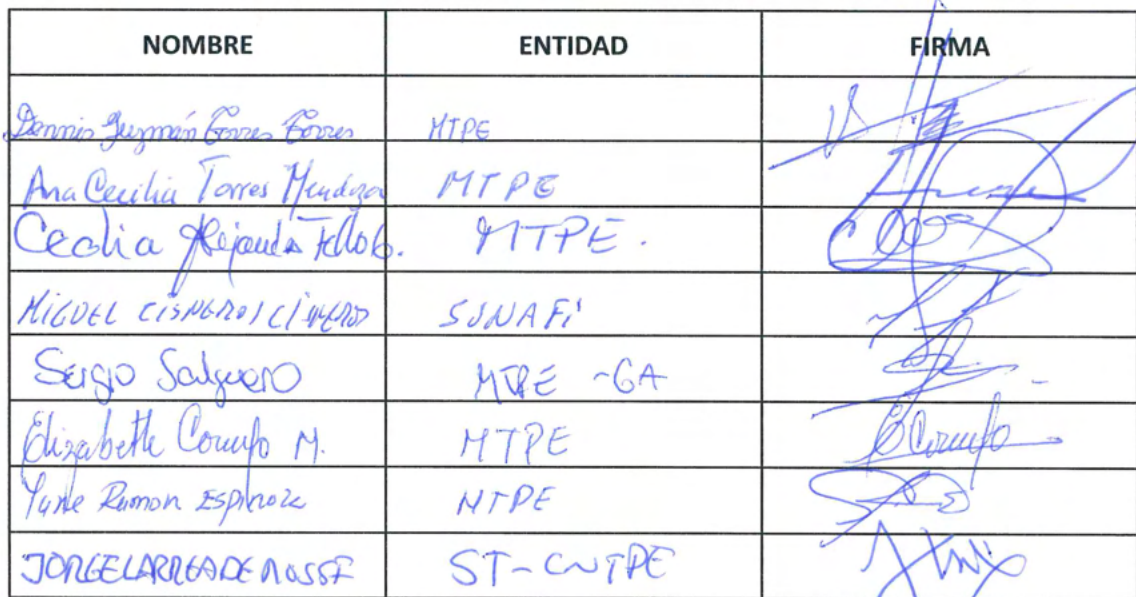 NOMBRE ENTIDAD FIRMA
Dennis Guzmán Torres Torres MTPE
Ana Cecilia Torres Mendoza MTPE
Cecilia Alejandra Tello G. MTPE.
MIGUEL CISNEROS CISNEROS SUNAFI
Sergio Salguero MTPE - GA
Elizabeth Cornejo M. MTPE
Ramon Espinoza MTPE
JORGE LARREA DE ROSSI ST-CNTPE